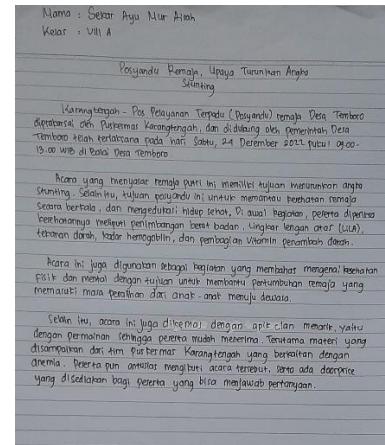 Nama : Sekar Ayu Nur Aisah
Kelas : VIII A
Posyandu Remaja, Upaya Turunkan Angka
Stunting
Karangtengah - Pos Pelayanan Terpadu (Posyandu) remaja Desa Temboro
diprakarsai oleh Puskesmas Karangtengah, dan didukung oleh pemerintah Desa
Temboro telah terlaksana pada hari Sabtu, 24 Desember 2022 pukul 09.00-
13.00 WIB di Balai Desa Temboro.
Acara yang menyasar remaja putri ini memiliki tujuan menurunkan angka
stunting. Selain itu, tujuan posyandu ini untuk memantau kesehatan remaja
secara berkala, dan mengedukasi hidup sehat. Di awal kegiatan, peserta diperiksa
kesehatannya meliputi penimbangan berat badan, lingkar lengan atas (LiLA),
tekanan darah, kadar hemoglobin, dan pembagian vitamin penambah darah.
Acara ini juga digunakan sebagai kegiatan yang membahas mengenai kesehatan
fisik dan mental dengan tujuan untuk membantu pertumbuhan remaja yang
memasuki masa peralihan dari anak-anak menuju dewasa.
Selain itu, acara ini juga dikemas dengan apik dan menarik, yaitu
dengan permainan sehingga peserta mudah menerima. Terutama materi yang
disampaikan dari tim Puskesmas Karangtengah yang berkaitan dengan
anemia. Peserta pun antusias mengikuti acara tersebut, serta ada doorprice
yang disediakan bagi peserta yang bisa menjawab pertanyaan.